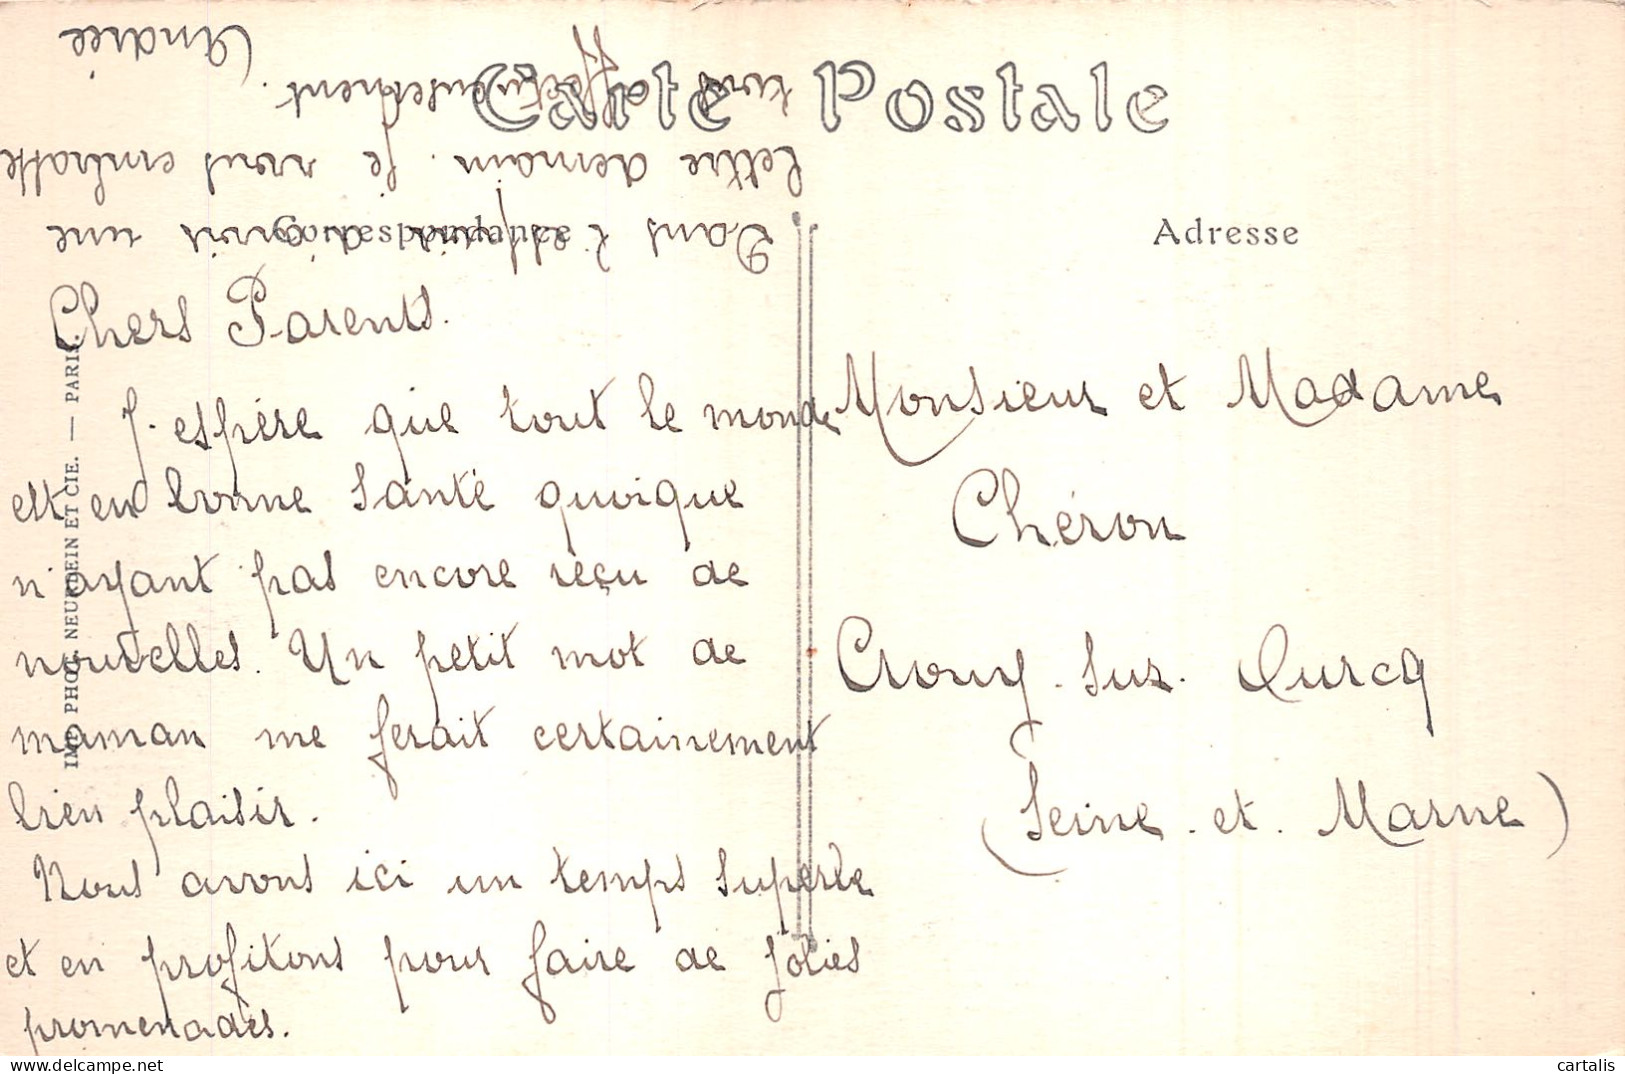 Carte Postale
Correspondance
Adresse
Chers Parents.
J'espère que tout le monde
est en bonne santé quoique
n'ayant pas encore reçu de
nouvelles. Un petit mot de
maman me ferait certainement
bien plaisir.
Nous avons ici un temps superbe
et en profitons pour faire de jolies
promenades.
Dans l'espoir d'avoir une
lettre demain je vous embrasse
tous affectueusement.
Andrée
Monsieur et Madame
Chéron
Crouy-sur-Ourcq
(Seine-et-Marne)
IMP. PHOT. NEURDEIN ET CIE. — PARIS.
cartalis